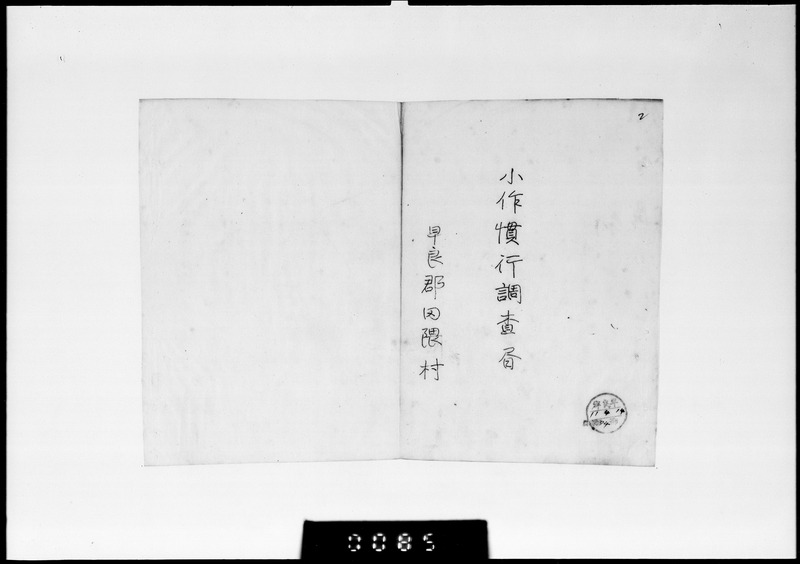 2
小作慣行調査書
早良郡田隈村
0085